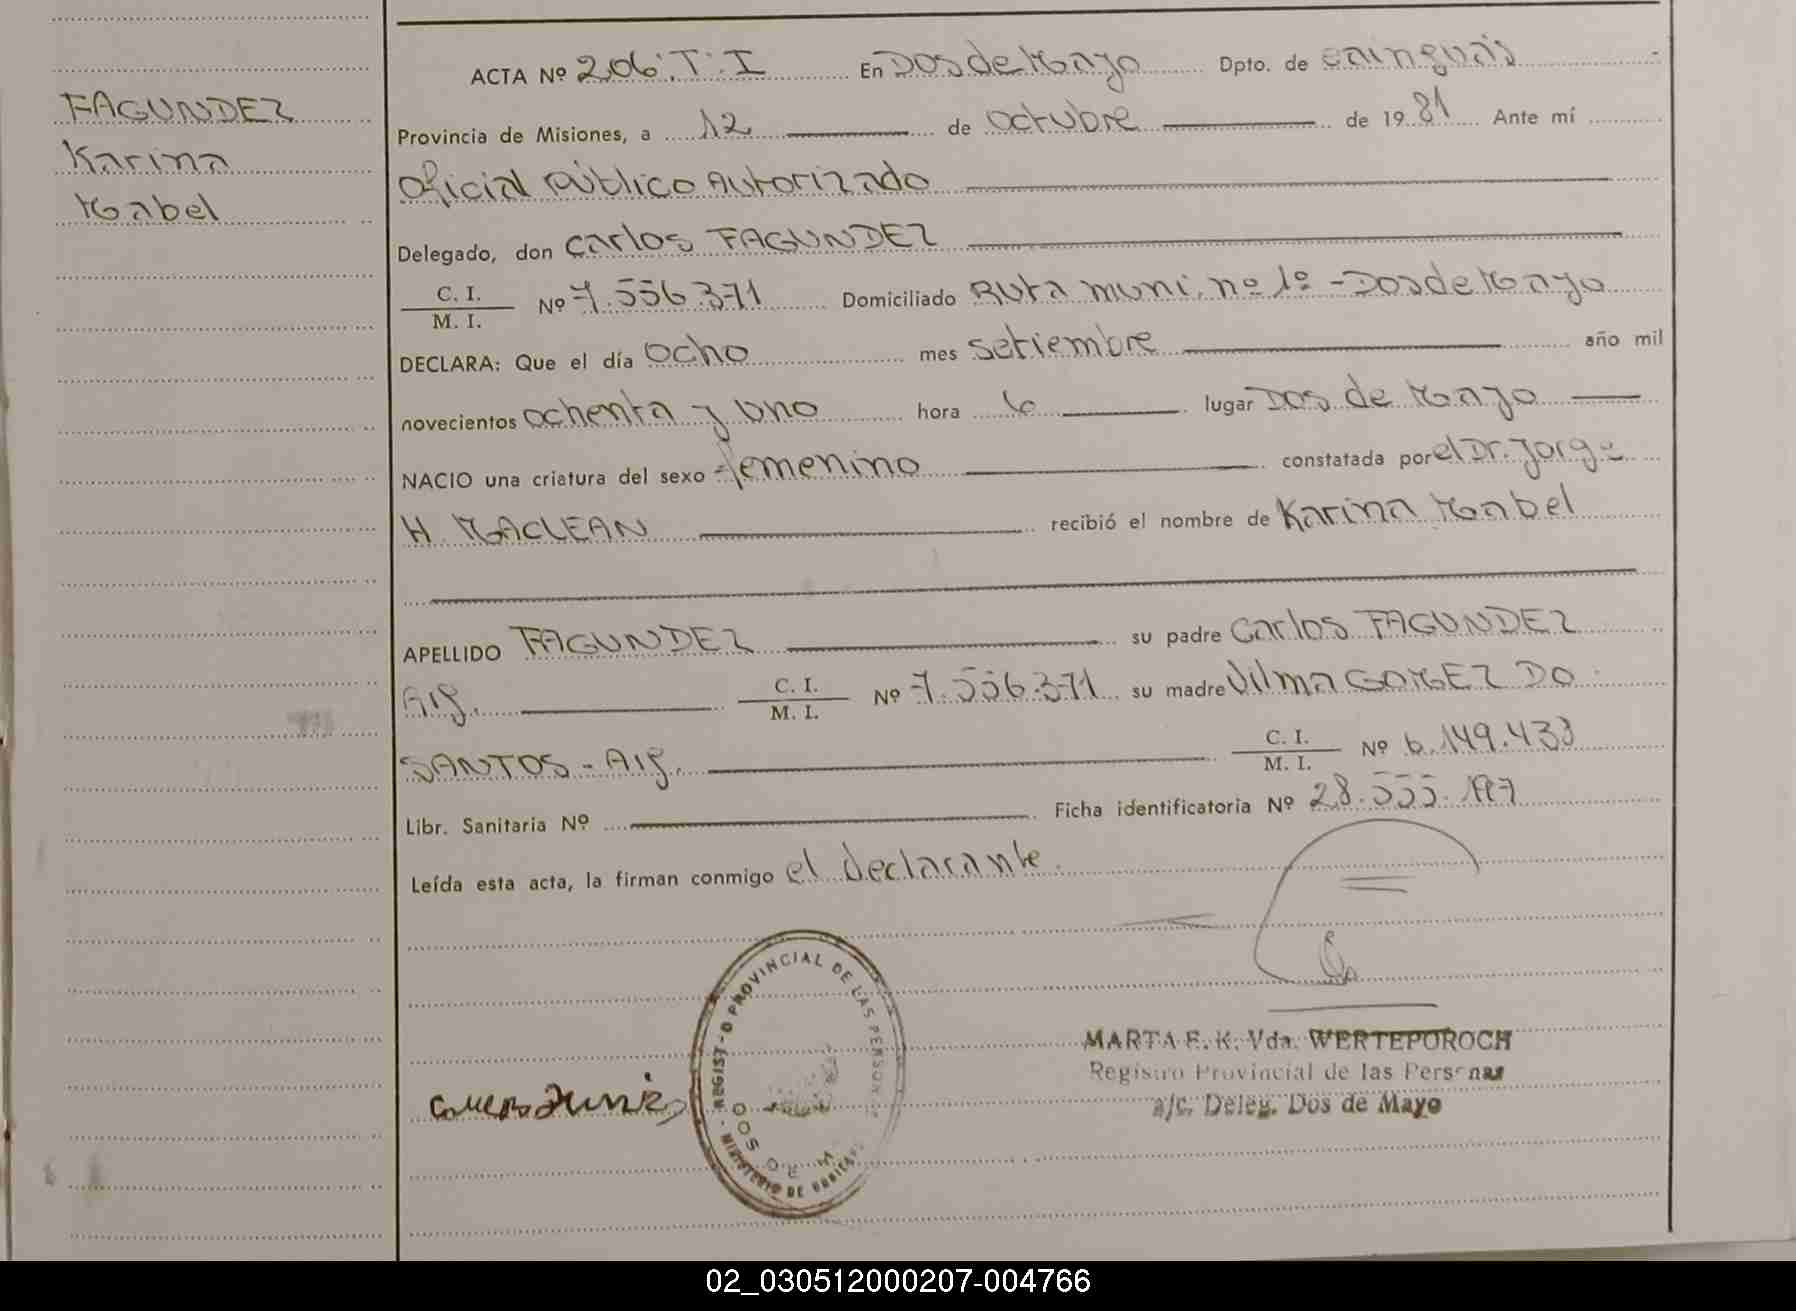 FAGUNDEZ
Karina
Mabel
ACTA Nº 206.T.I En Dos de Mayo Dpto. de cainguás
Provincia de Misiones, a 12 de octubre de 1981 Ante mí
oficial público Autorizado
Delegado, don carlos FAGUNDEZ
C. I.
M. I.
Nº 7.556.371 Domiciliado Ruta muni. nº 1º - Dos de Mayo
DECLARA: Que el día ocho mes setiembre año mil
novecientos ochenta y uno hora 6 lugar Dos de Mayo
NACIO una criatura del sexo femenino constatada por el Dr. Jorge
H. MACLEAN recibió el nombre de Karina Mabel
APELLIDO FAGUNDEZ su padre Carlos FAGUNDEZ
Arg. C. I.
M. I.
Nº 7.556.371 su madre Vilma GOMEZ DO
SANTOS - Arg. C. I.
M. I.
Nº 6.149.433
Libr. Sanitaria Nº Ficha identificatoria Nº 28.555.197
Leída esta acta, la firman conmigo el declarante.
REGISTRO PROVINCIAL DE LAS PERSONAS
MINISTERIO DE
MARTA E. K. Vda. WERTEPOROCH
Registro Provincial de las Personas
a/c. Deleg. Dos de Mayo
02_030512000207-004766